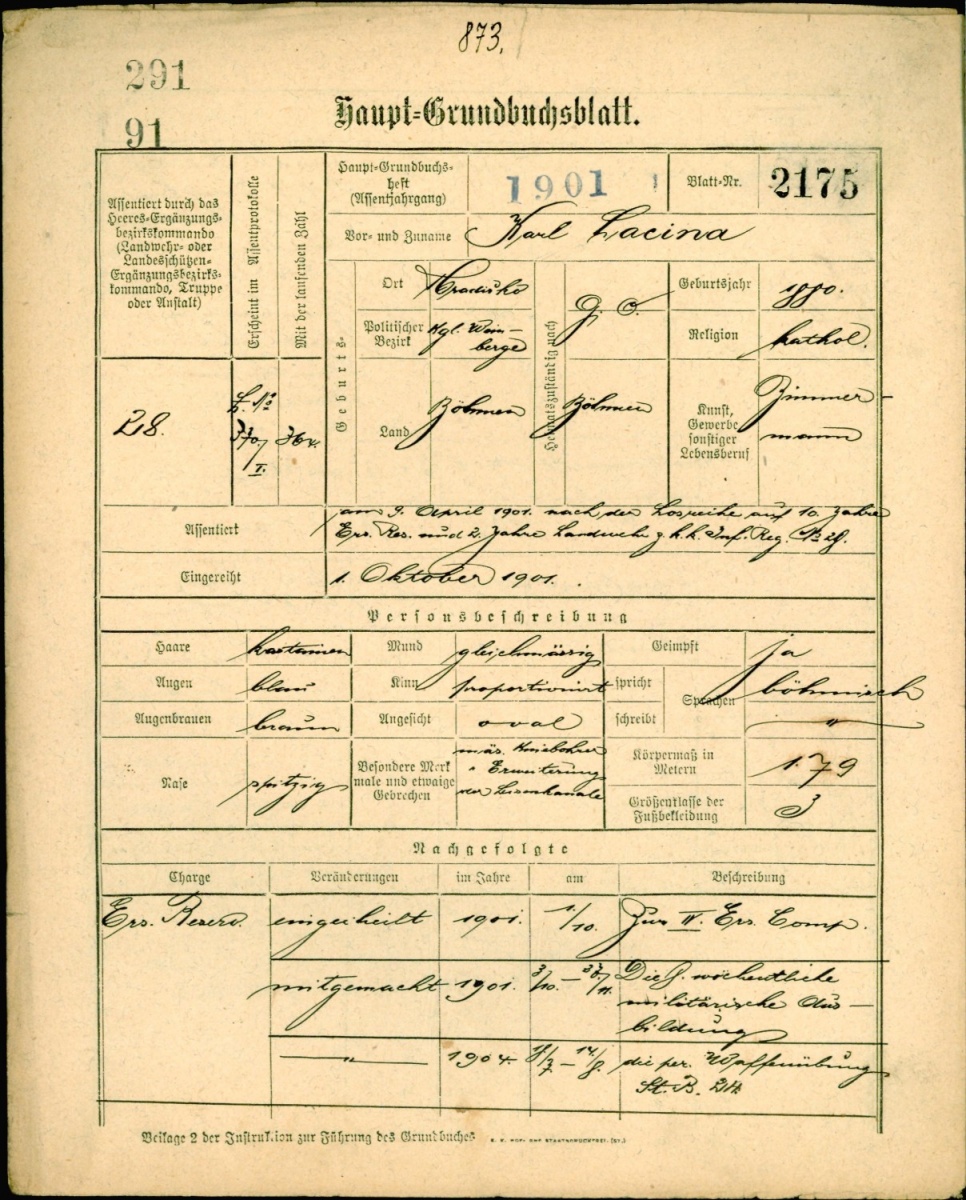 873.
291
91
Haupt-Grundbuchsblatt.
Assentiert durch das
Heeres-Ergänzungs-
bezirkskommando
(Landwehr- oder
Landesschützen-
Ergänzungsbezirks-
kommando, Truppe
oder Anstalt)
Erscheint im Assentprotokolle
Mit der laufenden Zahl
Haupt-Grundbuchs-
heft
(Assentjahrgang)
1901
Blatt-Nr.
2175
Vor- und Zuname
Karl Lacina
Geburts-
Ort
Hradisko
Politischer
Bezirk
Kgl. Wein-
berge
Land
Böhmen
Heimatszuständig nach
g. O.
Böhmen
Geburtsjahr
1880.
Religion
kathol.
Kunst,
Gewerbe
sonstiger
Lebensberuf
Zimmer-
mann
28.
I.
Assentiert
am 9. April 1901. nach der Losreihe auf 10 Jahre
Ers. Res. und 2 Jahre Landwehr z. k. k. Inf. Reg. No 28.
Eingereiht
1. Oktober 1901.
Personsbeschreibung
Haare
kastanien
Mund
gleichmässig
Geimpft
ja
Augen
blau
Kinn
proportionirt
spricht
Sprachen
böhmisch
Augenbrauen
braun
Angesicht
oval
schreibt
"
Nase
spitzig
Besondere Merk
male und etwaige
Gebrechen
mäs. Kniebohrer
" Erweiterung
der Leistenkanäle
Körpermaß in
Metern
1.79
Größenklasse der
Fußbekleidung
3
Nachgefolgte
Charge
Veränderungen
im Jahre
am
Beschreibung
Ers. Reserv.
eingetheilt
1901.
1/10.
Zur IV. Ers. Comp.
mitgemacht
1901.
Die 8. wöchentliche
militärische Aus-
bildung
"
1904.
18/7 – 14/8.
die per. Waffenübung
St. B.
Beilage 2 der Instruktion zur Führung des Grundbuches
K. K. HOF- UND STAATSDRUCKEREI.